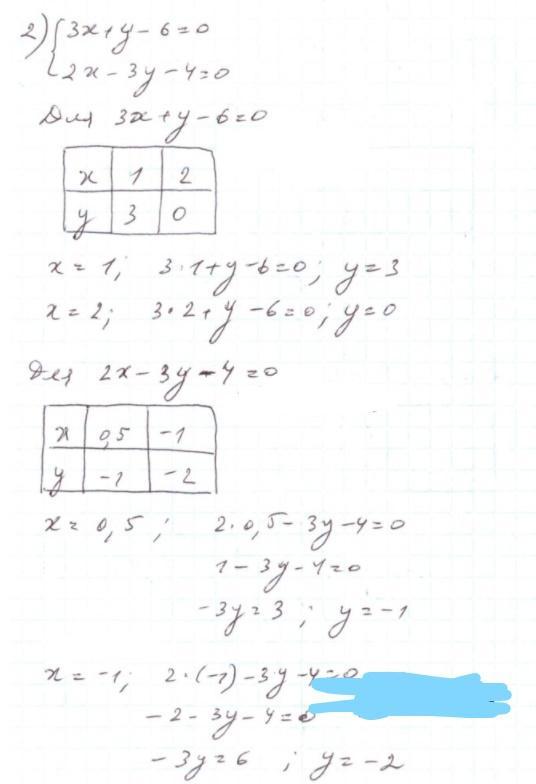 2) { 3x+y-6=0
2x-3y-4=0
Для 3x+y-6=0
x | 1 | 2
y | 3 | 0
x=1; 3·1+y-6=0; y=3
x=2; 3·2+y-6=0; y=0
Для 2x-3y-4=0
x | 0,5 | -1
y | -1 | -2
x=0,5; 2·0,5-3y-4=0
1-3y-4=0
-3y=3; y=-1
x=-1; 2·(-1)-3y-4=0
-2-3y-4=0
-3y=6; y=-2